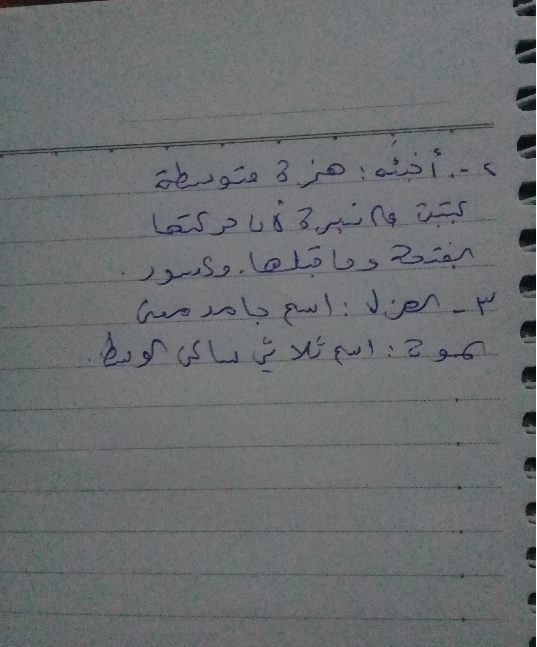 ٢ - أفئدة: همزة متوسطة
كتبت على نبرة لأن حركتها
الفتحة وما قبلها مكسور.
٣ - العزل: اسم جامد معنى
صوت: اسم ثلاثي ساكن الوسط.